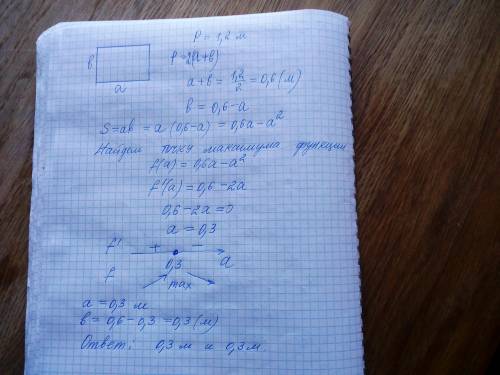 P = 1,2 м
в
a
P = 2(a+в)
a+в = 1,2/2 = 0,6 (м)
в = 0,6-a
S=aв = a (0,6-a) = 0,6a-a²
Найдем точку максимума функции
f(a) = 0,6a-a²
f'(a) = 0,6-2a
0,6-2a=0
a = 0,3
f' + -
0,3 a
f max
a = 0,3 м
в = 0,6-0,3 = 0,3 (м)
Ответ: 0,3 м и 0,3 м